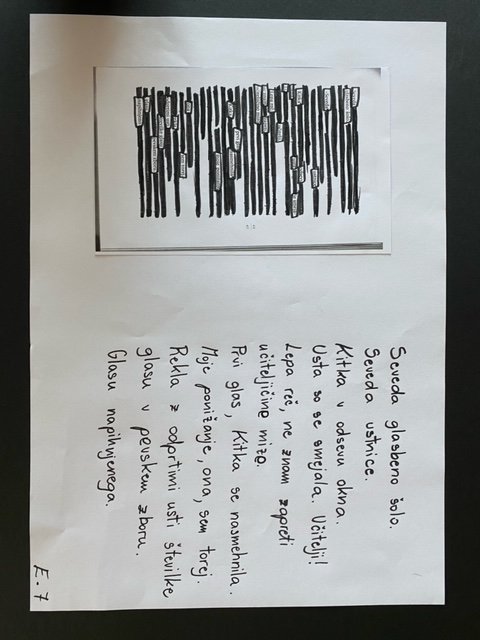 Seveda glasbeno šolo.
Seveda ustnice.
Kitka v odsevu okna.
Usta so se smejala. Učitelji!
Lepa reč, ne znam zapreti
učiteljičino mizo.
Prvi glas, Kitka se nasmehnila.
Moje ponižanje, ona, sem torej.
Rekla z odprtimi usti številke
glasu v pevskem zboru.
Glasu napihnjenega.
E. 7